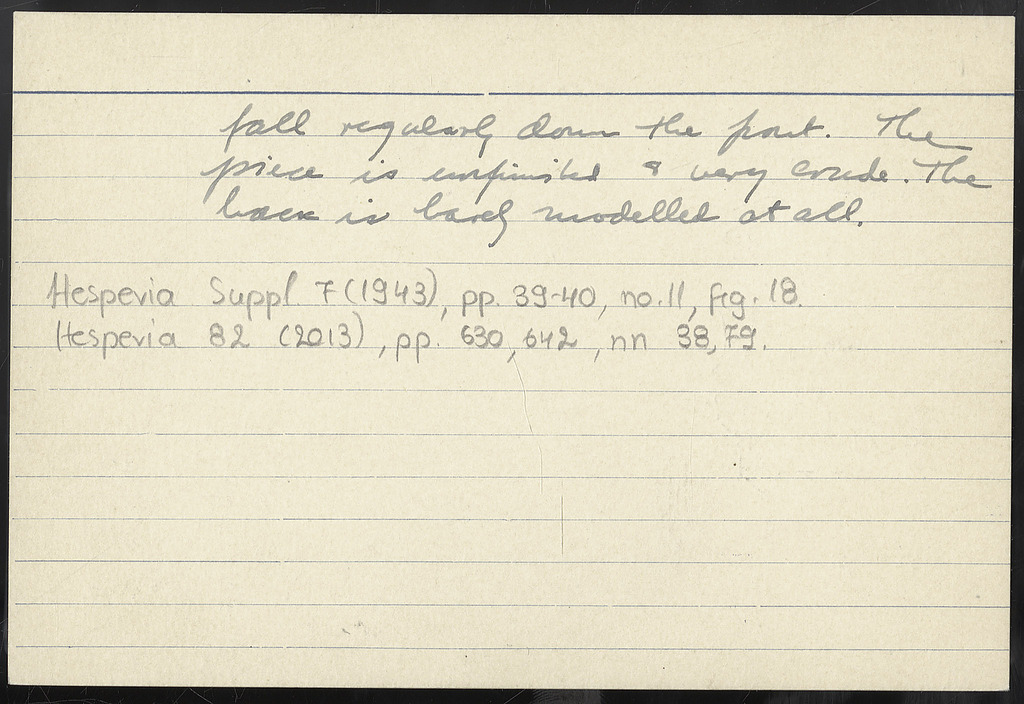 fall regularly down the front. The
piece is unfinished & very crude. The
back is barely modelled at all.
Hesperia Suppl. 7 (1943), pp. 39-40, no. 11, fig. 18.
Hesperia 82 (2013), pp. 630, 642, nn 38, 79.